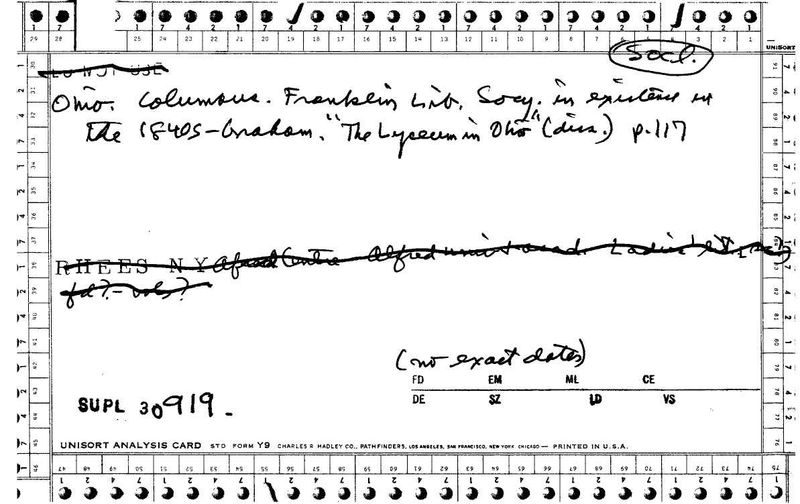 Socl.
DO NOT USE
Ohio. Columbus. Franklin Lib. Socy. in existence in
the 1840s-Graham. "The Lyceum in Ohio" (diss.) p.117
RHEES NY Alfred Centre Alfred Univ
fd?.- vols?
(no exact dates)
FD EM ML CE
DE SZ LD VS
SUPL 30919.
UNISORT ANALYSIS CARD STD FORM Y9 CHARLES R HADLEY CO., PATHFINDERS, LOS ANGELES, SAN FRANCISCO, NEW YORK CHICAGO — PRINTED IN U.S.A.
UNISORT